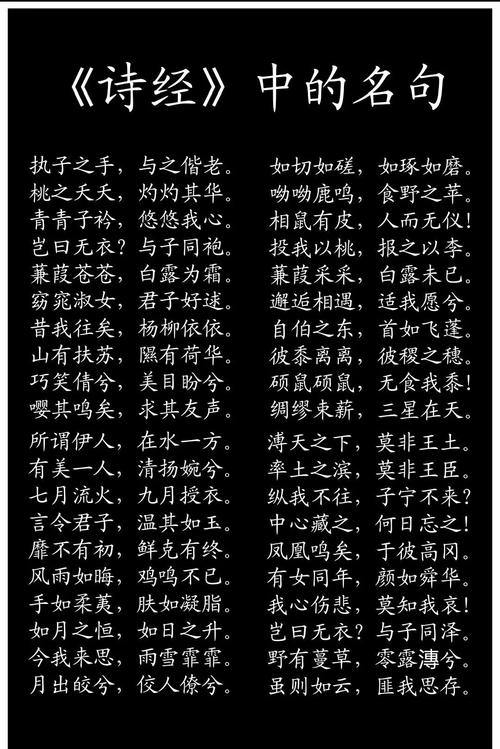 《诗经》中的名句
执子之手，与之偕老。
桃之夭夭，灼灼其华。
青青子衿，悠悠我心。
岂曰无衣？与子同袍。
蒹葭苍苍，白露为霜。
窈窕淑女，君子好逑。
昔我往矣，杨柳依依。
山有扶苏，隰有荷华。
巧笑倩兮，美目盼兮。
嘤其鸣矣，求其友声。
所谓伊人，在水一方。
有美一人，清扬婉兮。
七月流火，九月授衣。
言令君子，温其如玉。
靡不有初，鲜克有终。
风雨如晦，鸡鸣不已。
手如柔荑，肤如凝脂。
如月之恒，如日之升。
今我来思，雨雪霏霏。
月出皎兮，佼人僚兮。
如切如磋，如琢如磨。
呦呦鹿鸣，食野之苹。
相鼠有皮，人而无仪！
投我以桃，报之以李。
蒹葭采采，白露未已。
邂逅相遇，适我愿兮。
自伯之东，首如飞蓬。
彼黍离离，彼稷之穗。
硕鼠硕鼠，无食我黍！
绸缪束薪，三星在天。
溥天之下，莫非王土。
率土之滨，莫非王臣。
纵我不往，子宁不来？
中心藏之，何日忘之！
凤凰鸣矣，于彼高冈。
有女同年，颜如舜华。
我心伤悲，莫知我哀！
岂曰无衣？与子同泽。
野有蔓草，零露漙兮。
虽则如云，匪我思存。